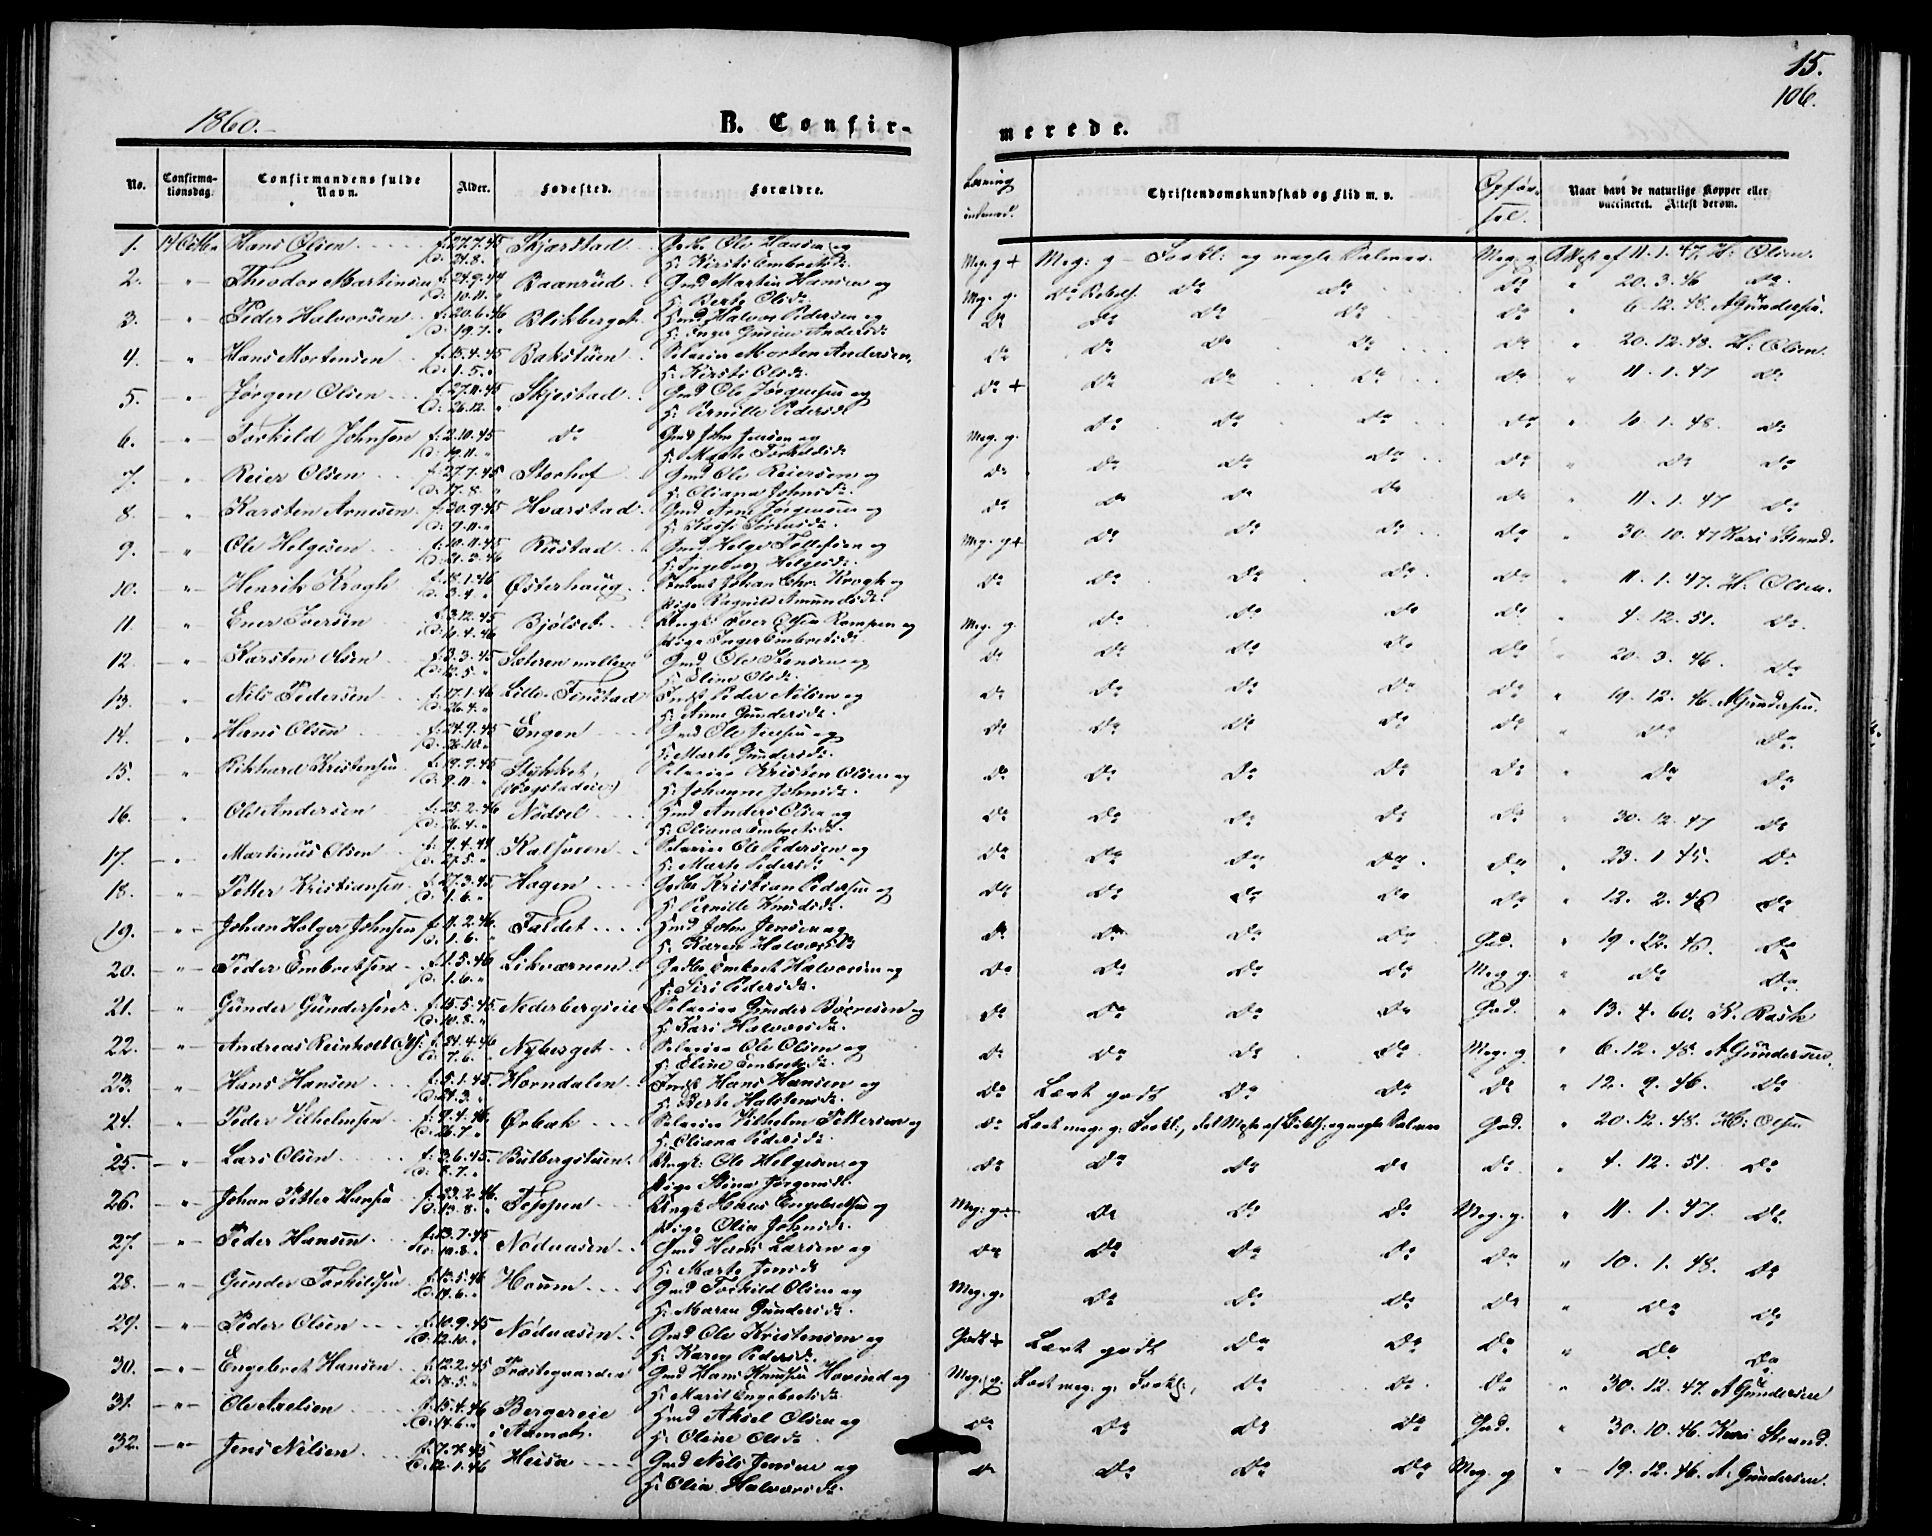 15.
106.
1860.
B. Confir-
merede.
No.
Confirma-
tionsdag.
Confirmandens fulde
Navn.
Alder.
Fødested.
Forældre.
Læsning
Christendomskundskab og Flid m. v.
Opfør-
sel.
Naar havt de naturlige Kopper eller
vaccineret. Attest derom.
1. 14 Octbr Hans Olsen f: 27.7.45 Skjærstad Gmd Ole Hansen og Meg: g + Meg: g Forkl: og nogle Salmer. Meg: g Attest af 11. 1. 47. H: Olsen.
d: 24.8. " H: Kirsti Embretsd:
2. " Theodor Martinsen f: 24.9.44 Baanrud Gmd Martin Hansen og Meg: g. Do Do Do Do " 20. 3. 46 Do
d: 10.11. " H: Berte Olsd:
3. " Peder Halvorsen f: 20.6.46 Blikberget Hmd Halvor Pedersen og Do Do Do Do Do " 6. 12. 48. A Gundersen.
d: 19.7. " H: Inger Andersd:
4. " Hans Mortensen f: 15.4.45 Bakstuen Morten Andersen Do Do Do Do Do " 20. 12. 48. H: Olsen.
d: 1.5. " H: Kirsti Olsd:
5. " Jørgen Olsen f: 27.11.45 Skjestad Gmd Ole Jørgensen og Do + Do Do Do Do " 11. 1. 47 Do
d: 26.12. " H: Pernille Pedersd:
6. " Torkild Johnsen f: 2.10.45 Do Gmd John Jensen og Meg. g. Do Do Do Do " 10. 1. 48. Do
d: 19.11. " H: Marte Torkildsd:
7. " Reier Olsen f: 27.7.45 Storhof Gmd Ole Reiersen og Do Do Do Do Do " Do Do
d: 17.8. " H: Oliana Johnsd:
8. " Karsten Arnesen f: 20.9.45 Hvarstad Gmd Arne Jørgensen og Do Do Do Do Do " 11. 1. 47 Do
d: 9.11. " H: Kari
9. " Ole Helgesen f: 10.11.45 Rustad Gmd Helge Tollefsen og Meg. g + Do Do Do Do " 30. 10. 47 Kari Strand.
d: 21.2.46 H: Ingeborg Helgesd:
10. " Henrik Krogh f: 18.1.46 Østerhaug Johan Chr. Krogh og Do Do Do Do Do " 11. 1. 47. H: Olsen.
d: 3.4. " Pige Ragnild Amundsd:
11. " Ener Iversen f: 3.12.45 Bjølset Ungk: Iver Olsen Rompen og Meg. g. Do Do Do Do " 4. 12. 51. Do.
d: 10.4.46 Pige Inger Embretsd:
12. " Karsten Olsen f: 3.3.45 Sæteren mellem Gmd Ole Stensen og Do Do Do Do Do " 20. 3. 46. Do
d: 12.5. " H: Eline Olsd:
13. " Nils Pedersen f: 17.1.46 Lille-Finstad Indst Peder Nilsen og Do Do Do Do Do " 19. 12. 46. A Gundersen.
d: 26.4. " H: Anne Gundersd:
14. " Hans Olsen f: 24.9.45 Engen Gmd Ole Jensen og Do Do Do Do Do " Do Do
d: 26.10. " H: Marte Gundersd:
15. " Rikhard Kristensen f: 19.7.45 Stykket Kristen Olsen og Do Do Do Do Do " Do Do
d: 9.11. " H: Johanne Johnsd:
16. " Ole Andersen f: 25.2.46 Nødsel Hmd Anders Olsen og Do Do Do Do Do " 30. 12. 47 Do
d: 26.4. " H: Oliana Embretsd:
17. " Martinus Olsen f: 9.4.44 Kalsveen Ole Pedersen og Do Do Do Do Do " 23. 1. 45. Do
d: 27.5. " H: Marte Pedersd:
18. " Petter Kristiansen f: 27.3.45 Hagen Kristian Pedersen og Do Do Do Do Do " 12. 2. 46 Do
d: 1.6. " H: Pernille Knudsd:
19. " Johan Holger Johnsen f: 11.2.46 Faldet Hmd John Jensen og Do Do Do Do God. " 19. 12. 46. Do
d: 1.6. " H: Karen Halvorsd:
20. " Peder Embretsen f: 1.5.46 Likværnen Embret Halvorsen og Do Do Do Do Meg. g. " Do Do
d: 1.6. " H: Siri Pedersd:
21. " Gunder Gundersen f: 15.5.45 Nederbergseie Gunder og Do Do Do Do God. " 13. 4. 60. K. Rask
d: 10.8. " H: Kari Halvorsd:
22. " Andreas Reinholt f: 4.46 Nyberget Ole Olsen og Do Do Do Do Meg. g. " 6. 12. 48. A Gundersen
d: 7.6. " H: Eline Embretsd:
23. " Hans Hansen f: 5.1.45 Horndalen Indst Hans Hansen og Do Lært godt Do Do Do " 12. 9. 46. Do
d: 24.3. " H: Berte Halstensd:
24. " Peder Vilhelmsen f: 9.4.46 Ørbæk Vilhelm Pettersen og Do Lært meg: g: Forkl:, det Meste af Bibelh: og nogle Salmer God. " 20. 12. 48. H: Olsen
d: 26.7. " H: Oliana Pedersd:
25. " Lars Olsen f: 3.6.45. Butbergstuen Ungk: Ole Helgesen og Do Do Do Do Do " 4. 12. 51. Do
d: 8.7. " Pige Stina Jørgensd:
26. " Johan Petter Hansen f: 23.2.46. Teppen Ungk Hans Engebretsen og Meg: g + Do Do Do Meg. g. " 11. 1. 47. Do.
d: 8. " Pige Olia Johnsd:
27. " Peder Hansen f: 13.7.45 Nøduasen Gmd Hans Larsen og Do Do Do Do Do " 10. 1. 48. Do
d: 10.8. " H: Marte Jensd:
28. " Gunder Torkildsen f: 13.5.46 Houm Gmd Torkild Olsen og Meg: g. Do Do Do Do " Do Do
d: 14.6. " H: Maren Gundersd:
29. " Peder Olsen f: 10.9.45 Nøduasen Gmd Ole Kristensen og Godt + Lært godt Do Do Do " Do Do
d: 12.10. " H: Karen Pedersd:
30. " Engebret Hansen f: 12.2.45 Præstegaarden Gmd Hans Knudsen Hovind og Meg: g. Lært meg: g: Forkl:, Do Do Do " 30. 12. 47. A Gundersen
d: 18.5. " H: Marit Engebretsd:
31. " Ole Axelsen f: 15.4.46 Bergereie Hmd Aksel Olsen og Do Do Do Do God. " 30. 10. 46. Kari Strand.
d: 14.6. " i Aamot. H: Oline Olsd:
32. " Jens Nilsen f: 7.7.45 Heisa Gmd Nils Jensen og Do Do Do Do Meg. g " 19. 12. 46. A. Gundersen
d: 12.1.46 H: Olia Halvorsd: